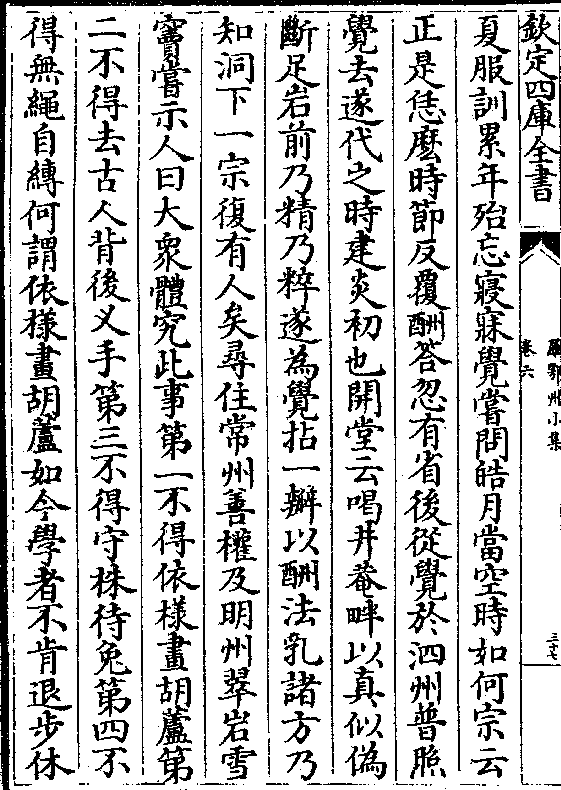 欽定四庫全書
羅鄂州小集
卷六
三十七
夏服訓累年殆忘寢寐覺嘗問皓月當空時如何宗云
正是恁麽時節反覆酬答忽有省後從覺於泗州普照
覺去遂代之時建炎初也開堂云喝井菴畔以真似偽
斷足岩前乃精乃粹遂為覺拈一瓣以酬法乳諸方乃
知洞下一宗復有人矣尋住常州善權及明州翠岩雪
竇嘗示人曰大衆體究此事第一不得依様畫胡蘆第
二不得去古人背後乂手第三不得守株待兔第四不
得無繩自縳何謂依様畫胡蘆如今學者不肯退步休